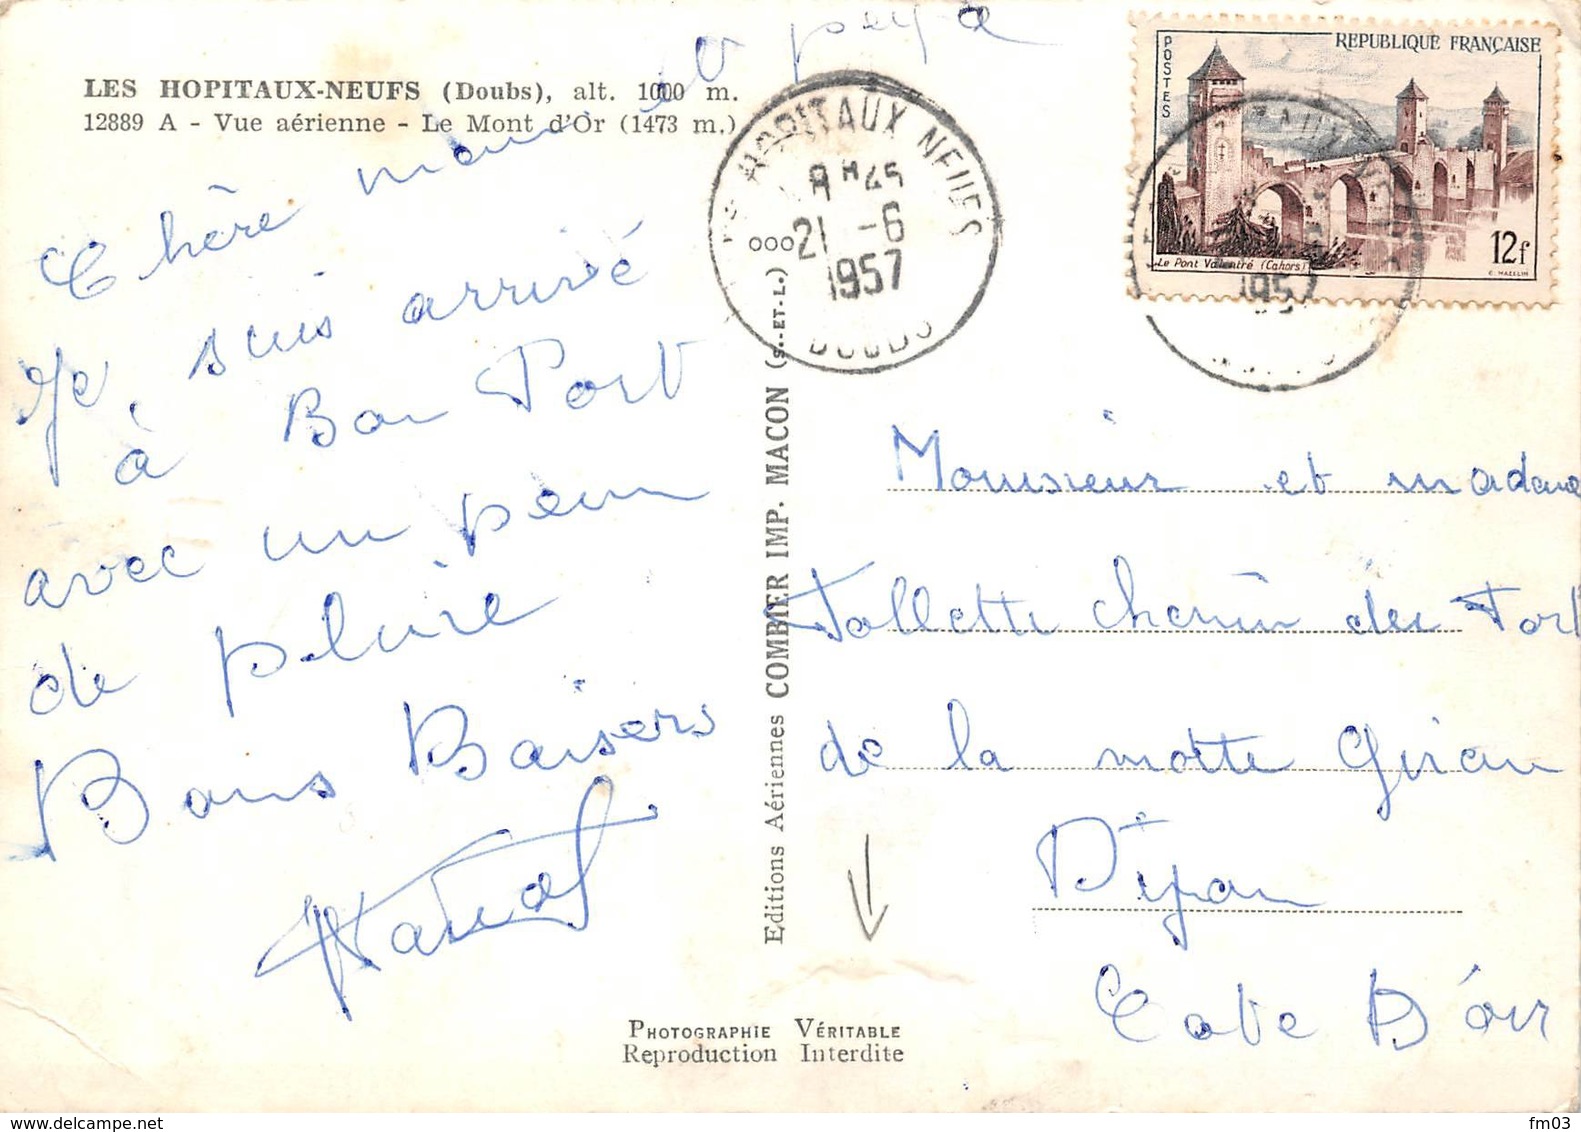 LES HOPITAUX-NEUFS (Doubs), alt. 1000 m.
12889 A - Vue aérienne - Le Mont d'Or (1473 m.)
Chère maman et papa
Je suis arrivé
à Bon Port
avec un peu
de pluie
Bons Baisers
Editions Aériennes COMBIER IMP. MACON (S.-ET-L.)
HOPITAUX NEUFS
8H45
21 -6
1957
DOUBS
REPUBLIQUE FRANÇAISE
POSTES
Le Pont Valentré (Cahors)
12f
C. MAZELIN
195
Monsieur et madame
Follette chemin du Fort
de la motte Giron
Dijon
Cote D'or
PHOTOGRAPHIE VÉRITABLE
Reproduction Interdite
www.delcampe.net
fm03